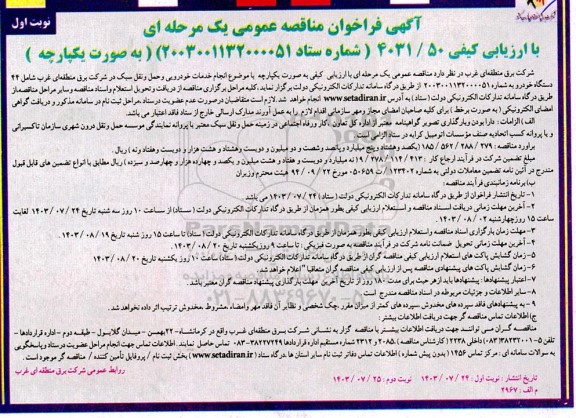 نوبت اول
آگهی فراخوان مناقصه عمومی یک مرحله ای
با ارزیابی کیفی ۵۰ / ۴۰۳۱ ( شماره ستاد ۲۰۰۳۰۰۱۱۳۲۰۰۰۰۵۱) ( به صورت یکپارچه )
شرکت برق منطقه‌ای غرب در نظر دارد مناقصه عمومی یک مرحله ای با ارزیابی کیفی به صورت یکپارچه با موضوع انجام خدمات خودرویی و حمل ونقل سبک در شرکت برق منطقه‌ای غرب شامل ۴۴
دستگاه خودرو به شماره ۲۰۰۳۰۰۱۱۳۲۰۰۰۰۵۱ از طریق درگاه سامانه تدارکات الکترونیکی دولت برگزار نماید. کلیه مراحل برگزاری مناقصه از دریافت و تحویل استعلام و اسناد مناقصه و سایر مراحل مناقصه از
طریق درگاه سامانه تدارکات الکترونیکی دولت ( ستاد ) به آدرس www.setadiran.ir انجام خواهد شد. لازم است متقاضیان در صورت عدم عضویت در ستاد ،مراحل ثبت نام در سامانه مذکور و دریافت گواهی
امضای الکترونیکی ( به صورت برخط ) برای کلیه صاحبان امضای مجاز و مهر سازمانی اقدام لازم را به عمل آورند مدارک ارسالی خارج از ستاد فاقد اعتبار می باشد.
الف ) الزامات : دارا بودن وبارگذاری تصویر گواهینامه معتبر از اداره کل تعاون ،کار ورفاه اجتماعی در زمینه حمل و نقل سبک معتبر یا پروانه نمایندگی موسسه حمل ونقل درون شهری سازمان تاکسیرانی
و یا پروانه کسب اتحادیه صنف مؤسسات اتومبیل کرایه در ستاد الزامیست .
برآورد مناقصه : ۲۷۹ / ۲۸۸ / ۵۶۲ / ۱۸۵ (یکصد وهشتاد وپنج میلیارد وپانصد وشصت و دو میلیون و دویست وهشتاد و هشت هزار و دویست وهفتاد ونه ) ریال.
مبلغ تضمین شرکت در فرآیند ارجاع کار : ۴۱۳ / ۱۱۴ / ۲۷۸ / ۹ (نه میلیارد و دویست و هفتاد و هشت میلیون و یکصد و چهارده هزار و چهارصد و سیزده ) ریال مطابق با انواع تضمین های قابل قبول
مندرج در آئین نامه تضمین معاملات دولتی به شماره ۱۲۳۴۰۲ / ت ۵۰۶۵۹ ه مورخ ۲۲ / ۰۹ / ۹۴ هیئت محترم وزیران
ب) برنامه زمانبندی فرآیند مناقصه:
۱- تاریخ انتشار فراخوان از طریق درگاه سامانه تدارکات الکترونیکی دولت (ستاد) ۲۴ / ۰۷ / ۱۴۰۳ می باشد
۲- آخرین مهلت زمانی دریافت اسناد مناقصه و استعلام ارزیابی کیفی بطور همزمان از طریق درگاه تدارکات الکترونیکی دولت (ستاد) از ساعت ۱۰ روز سه شنبه تاریخ ۲۴ / ۰۷ / ۱۴۰۳ لغایت
ساعت ۱۵ روز چهارشنبه ۰۲ / ۰۸ / ۱۴۰۳.
۳- مهلت زمان بارگزاری اسناد مناقصه واستعلام ارزیابی کیفی بطور همزمان از طریق درگاه سامانه تدارکات الکترونیکی دولت( ستاد) تا ساعت ۱۵ روز تاریخ ۱۹ / ۰۸ / ۱۴۰۳.
۴- آخرین مهلت زمانی تحویل ضمانت نامه شرکت در فرآیند مناقصه به صورت فیزیکی : تا ساعت ۹ روز یکشنبه تاریخ ۲۰ / ۰۸ / ۱۴۰۳.
۵- زمان گشایش پاکت های استعلام ارزیابی کیفی مناقصه گران از طریق درگاه سامانه تدارکات الکترونیکی دولت (ستاد) ساعت ۱۰ روز یکشنبه تاریخ ۲۰ / ۰۸ / ۱۴۰۳.
۶- زمان گشایش پاکت های پیشنهادی مناقصه پس از ارزیابی کیفی مناقصه گران متعاقبا" اعلام خواهد شد.
۷- اعتبار پیشنهادها : پیشنهادها باید از هر حیث برای مدت ۱۸۰ روز از تاریخ آخرین مهلت بارگذاری پیشنهاد مناقصه گران معتبر باشد.
۸- سایر اطلاعات و جزئیات مربوطه در اسناد مناقصه مندرج است
۹ - به پیشنهادهای فاقد سپرده های مخدوش سپرده های کمتر از میزان مقرر ،چک شخصی و نظایر آن فاقد مهر وامضاء، مشروط ،مخدوش ترتیب اثر داده نخواهد شد.
ج) اطلاعات تماس مناقصه گزار جهت دریافت اطلاعات بیشتر :
مناقصه گران می توانند جهت دریافت اطلاعات بیشتر با مناقصه گزار به نشانی شرکت برق منطقه‌ای غرب واقع در کرمانشاه- ۲۲بهمن – میدان گلایول – طبقه دوم – اداره قراردادها -
تلفن ۵-۳۸۲۳۲۰۰۱(۰۸۳) داخلی ۲۲۳۸ (کارشناس مناقصه)، ۲۰۸۵ و ۲۳۱۲ شماره مستقیم اداره قراردادها ۳۸۲۴۷۲۴۹-۰۸۳ تماس حاصل نمایند . اطلاعات تماس جهت انجام مراحل عضویت در ستاد و پاسخگویی
به سوالات سامانه ای : مرکز تماس ۱۴۵۶ (بدون پیش شماره) ، اطلاعات تماس دفاتر ثبت نام سایر استان ها ،درگاه ستاد ( www.setadiran.ir ) بخش ثبت نام / پروفایل تأمین کننده / مناقصه گر موجود است .
تاریخ انتشار : نوبت اول : ۲۴ / ۰۷ / ۱۴۰۳ نوبت دوم : ۲۵ / ۰۷ / ۱۴۰۳
روابط عمومی شرکت برق منطقه ای غرب
م الف : ۲۹۶۷